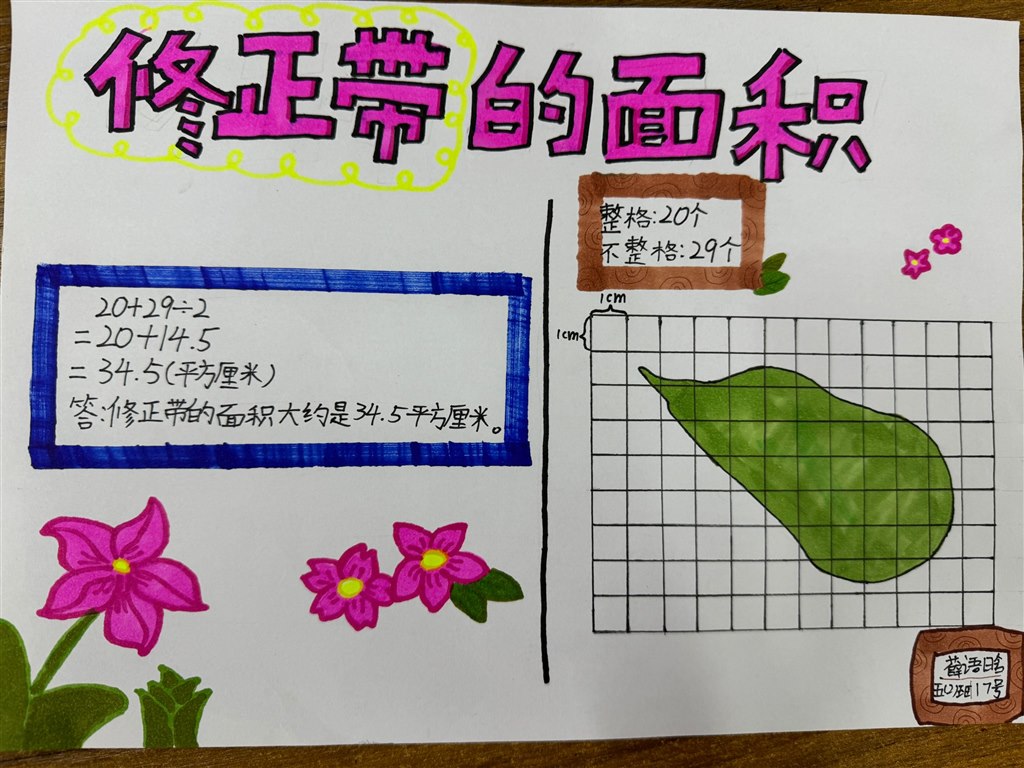 修正带的面积
整格:20个
不整格:29个
20+29÷2
=20+14.5
=34.5(平方厘米)
答:修正带的面积大约是34.5平方厘米。
1cm
1cm
17号